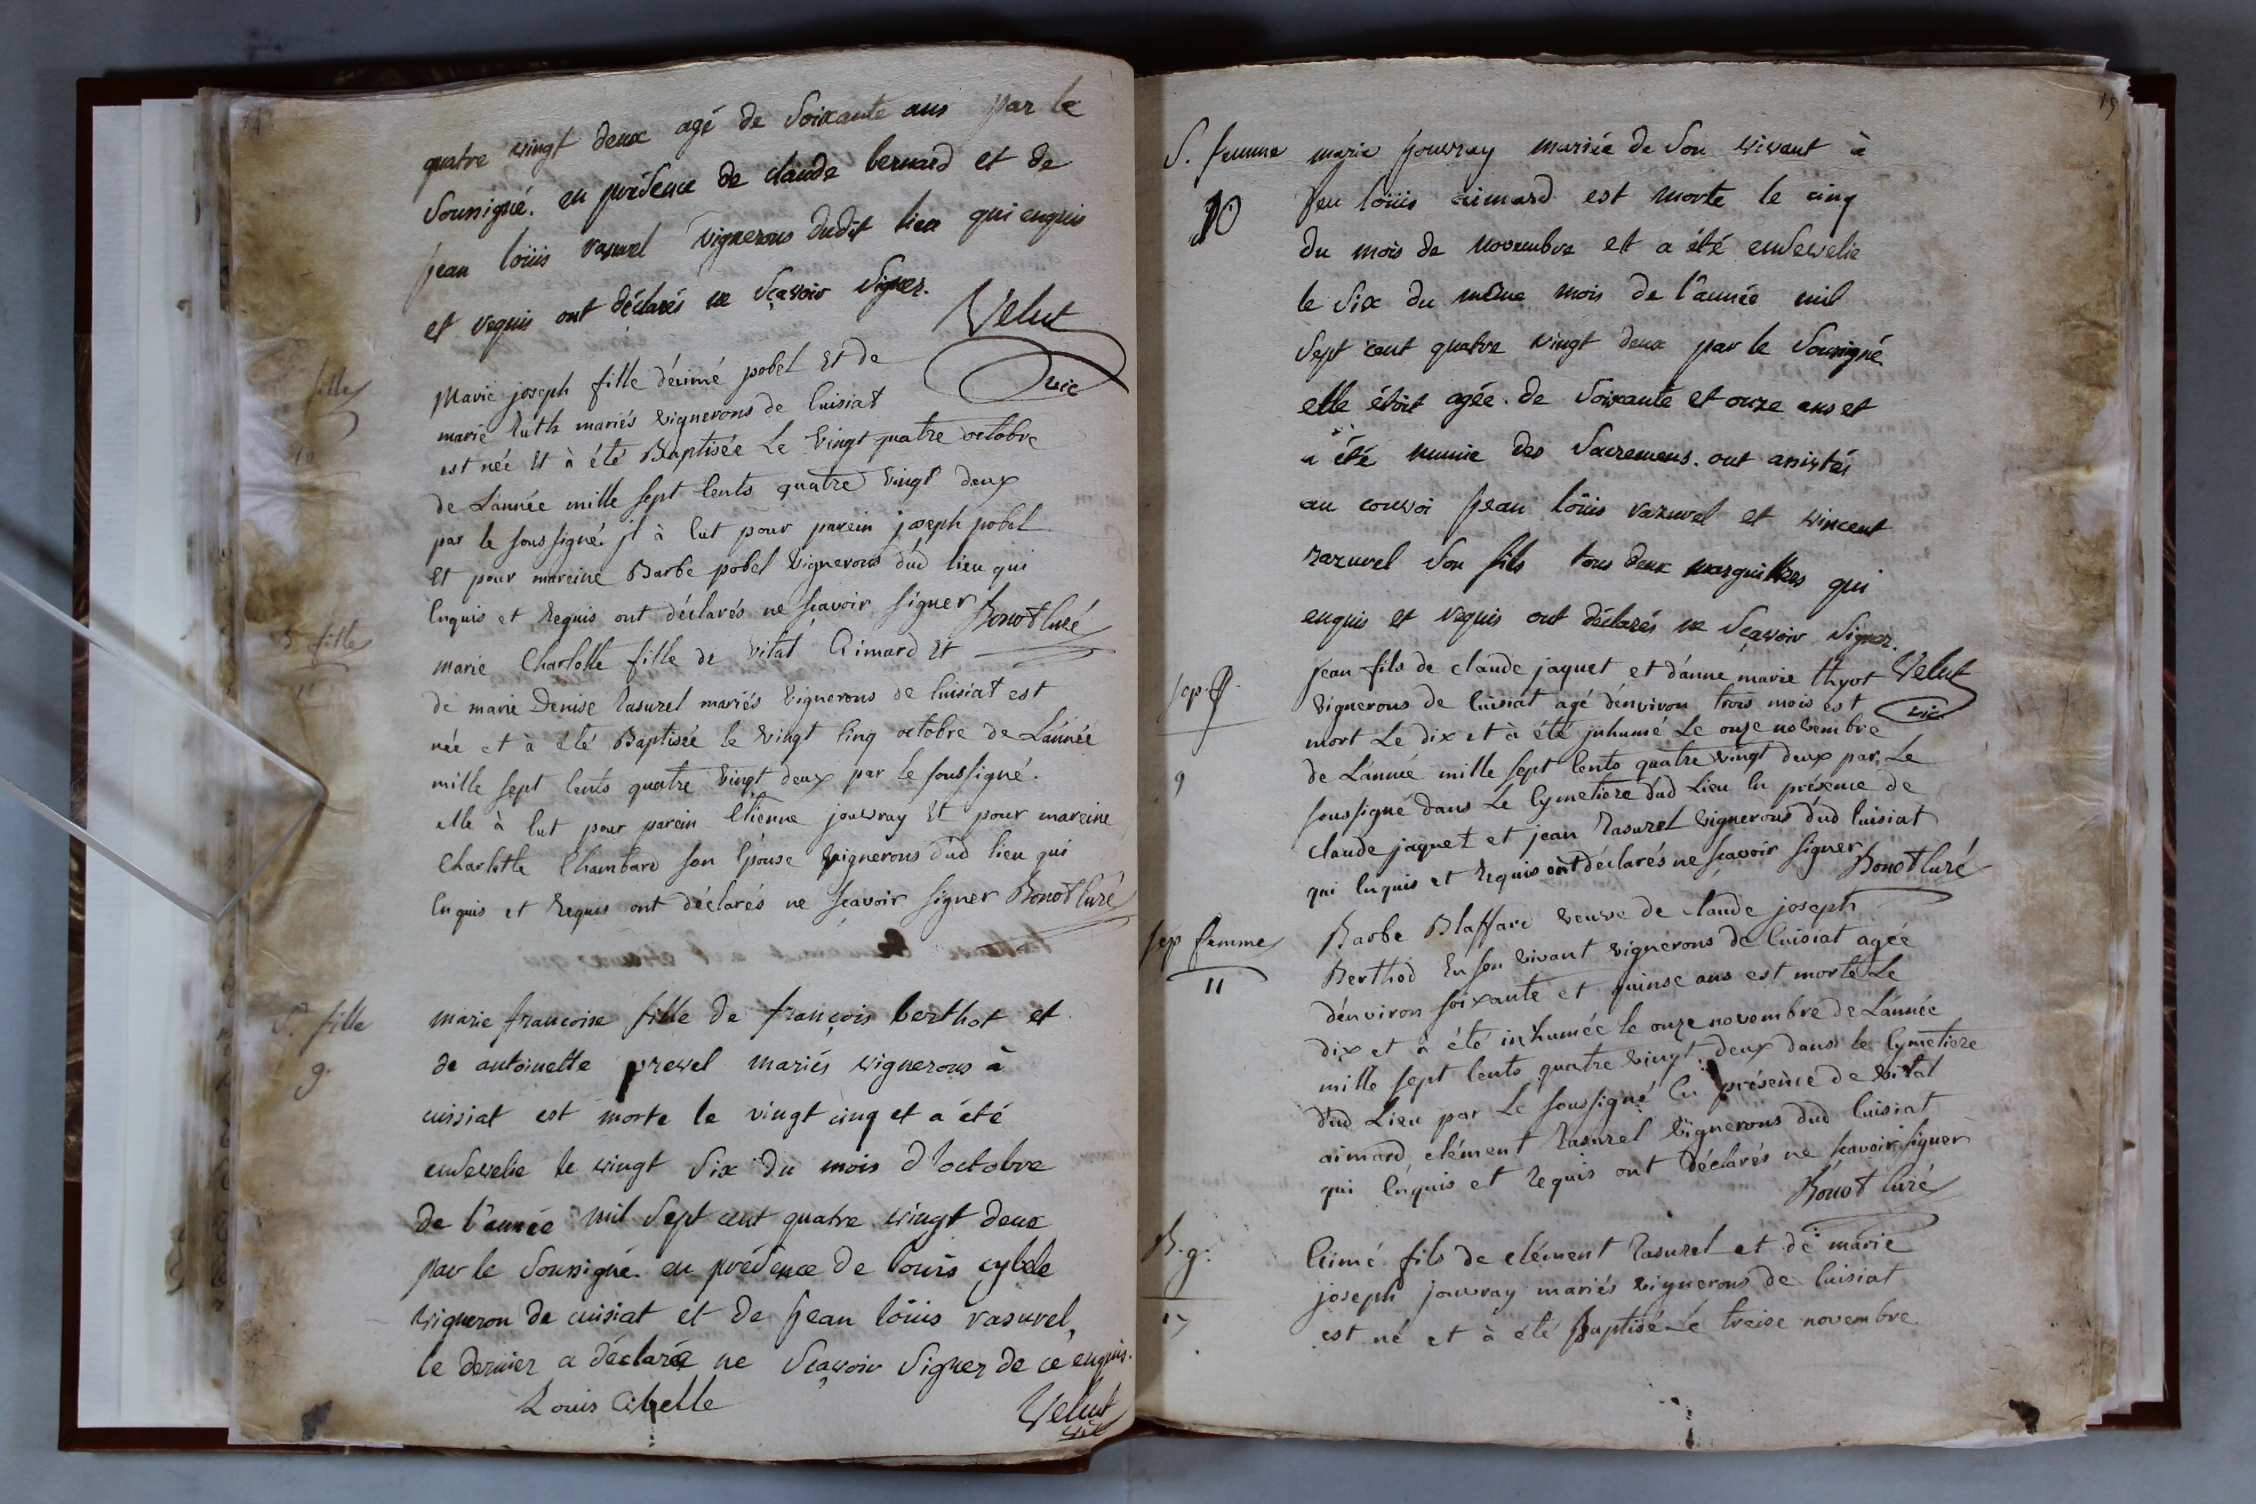 quatre vingt deux agé de Soixante ans par le
Soussigné. en présence de claude bernard et de
jean loüis rasurel vignerons dudit lieu qui enquis
et requis ont déclarés ne sçavoir signer.
Velut
vic
fille
Marie joseph fille d'éimé pobel Et de
marie ruth mariés vignerons de Cuisiat
est née Et à été Baptisée Le vingt quatre octobre
10
de L'année mille sept Cents quatre vingt deux
par le soussigné. jl à Eut pour parein joseph pobel
Et pour mareine Barbe pobel vignerons dud lieu qui
Enquis et Requis ont déclarés ne sçavoir signer Bonot Curé
B fille
11
marie Charlotte fille de vital Eimard Et
de marie Denise Rasurel mariés vignerons de Cuisiat est
née et à été Baptisée le vingt Cinq octobre de L'année
mille sept Cents quatre vingt deux par le soussigné.
elle à Eut pour parein Etienne jouvray Et pour mareine
Charlotte Chambard son Epouse vignerons dud lieu qui
Enquis et Requis ont déclarés ne sçavoir signer Bonot Curé
S. fille
9.
marie francoise fille de françois berthot et
de antoinette prevel mariés vignerons à
cuisiat est morte le vingt cinq et a été
ensevelie le vingt Six du mois d'octobre
de l'année mil Sept cent quatre vingt deux
par le Soussigné. en présence de louis cybele
vigneron de cuisiat et de jean loüis rasurel,
le dernier a déclaré ne Sçavoir Signer de ce enquis.
Louis Cibelle
Velut
vic
15
S. femme
10
marie jouvray mariée de Son vivant à
feu loüis aimard est morte le cinq
du mois de novembre et a été ensevelie
le Six du même mois de l'année mil
Sept cent quatre vingt deux par le Soussigné
elle étoit agée de Soixante et onze ans et
a été munie des Sacremens. ont assistés
au convoi jean loüis razurel et vincent
razurel Son fils tous deux marguilliers qui
enquis et requis ont déclarés ne Sçavoir Signer.
Velut
vic
sep. g.
9
jean fils de claude jaquet et d'anne marie thyot
vignerons de Cuisiat agé d'environ trois mois est
mort Le dix et à été jnhumé Le onze novembre
de L'année mille sept Cents quatre vingt deux par Le
soussigné dans Le Cymetiere dud Lieu En présence de
claude jaquet et jean Rasurel vignerons dud Cuisiat
qui Enquis et Requis ont déclarés ne sçavoir signer
Bonot Curé
sep femme
11
Barbe Blaffard veuve de claude joseph
Berthod En son vivant vignerons de Cuisiat agée
d'environ soixante et quinse ans est morte Le
dix et à été inhumée le onze novembre de L'année
mille sept Cents quatre vingt deux dans le Cymetiere
dud Lieu par Le soussigné En présence de vital
aimard, clément Rasurel vignerons dud Cuisiat
qui Enquis et Requis ont déclarés ne sçavoir signer
Bonot Curé
B. g.
Eimé fils de clément Rasurel et de marie
joseph jouvray mariés vignerons de Cuisiat
est né et à été Baptisé Le treise novembre